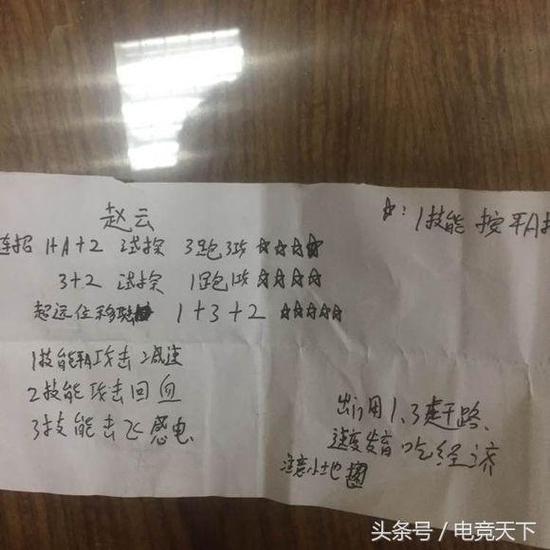 赵云
☆:1技能 按平A
连招 1+A+2 试探 3跑3攻 ☆☆☆☆
3+2 试探 1跑1攻 ☆☆☆☆
超远位移 1+3+2 ☆☆☆☆☆
1技能平A攻击减速
2技能攻击回血
3技能击飞感电
出门用1、3赶路
速度发育吃经济
注意小地图
头条号/电竞天下